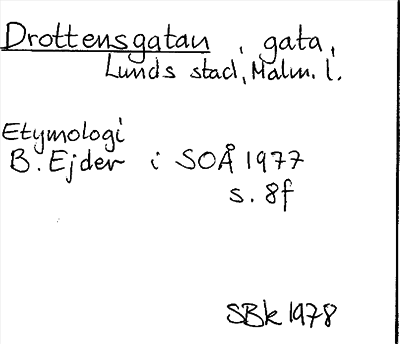 Drottensgatan, gata,
Lunds stad, Malm. l.
Etymologi
B. Ejder i SOÅ 1977
s. 8f
SBk 1978